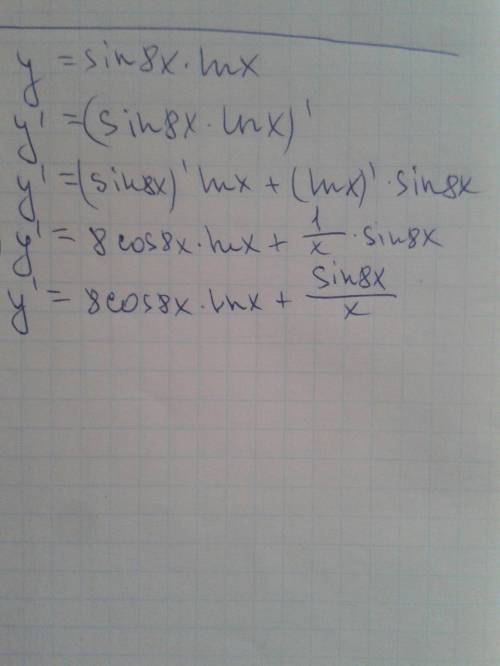 y = sin8x · lnx
y' = (sin8x · lnx)'
y' = (sin8x)' lnx + (lnx)' · sin8x
y' = 8cos8x · lnx + 1/x · sin8x
y' = 8cos8x · lnx + sin8x/x